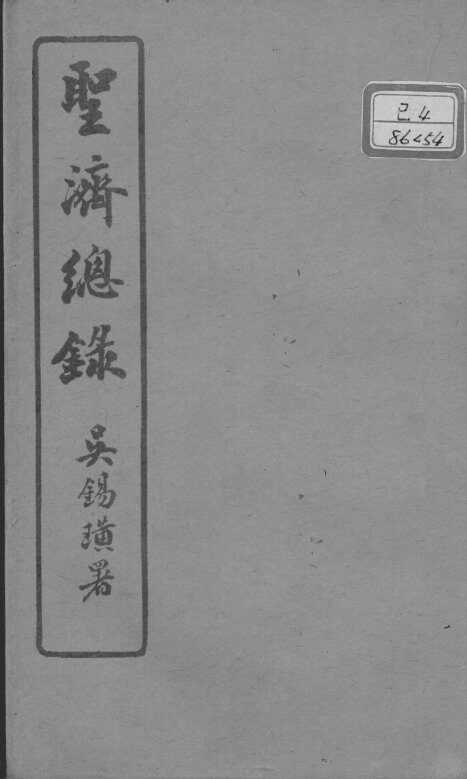 聖濟總錄
吳錫璜署
己 4
86454